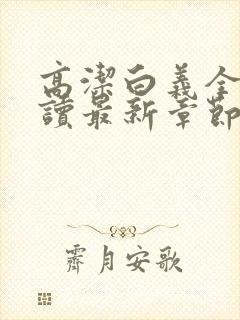 高潔白羲全
讀最新章節
霽月安歌